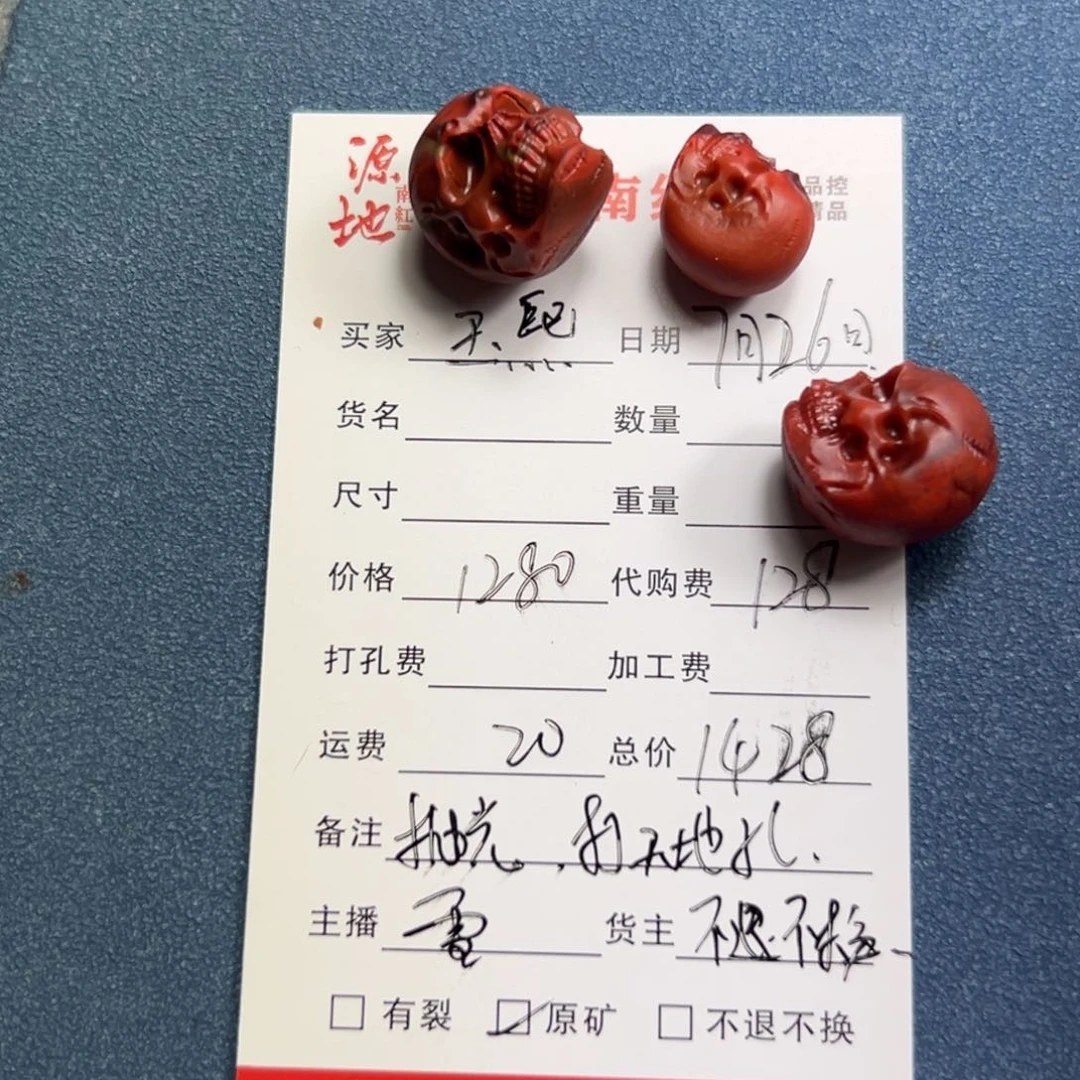 源地
南紅
南红
品控
精品
买家 王熙 日期 7月26日
货名 数量
尺寸 重量
价格 1280 代购费 128
打孔费 加工费
运费 20 总价 1428
备注 抛光.打天地孔.
主播 雪 货主 不退.不换
有裂 原矿 不退不换